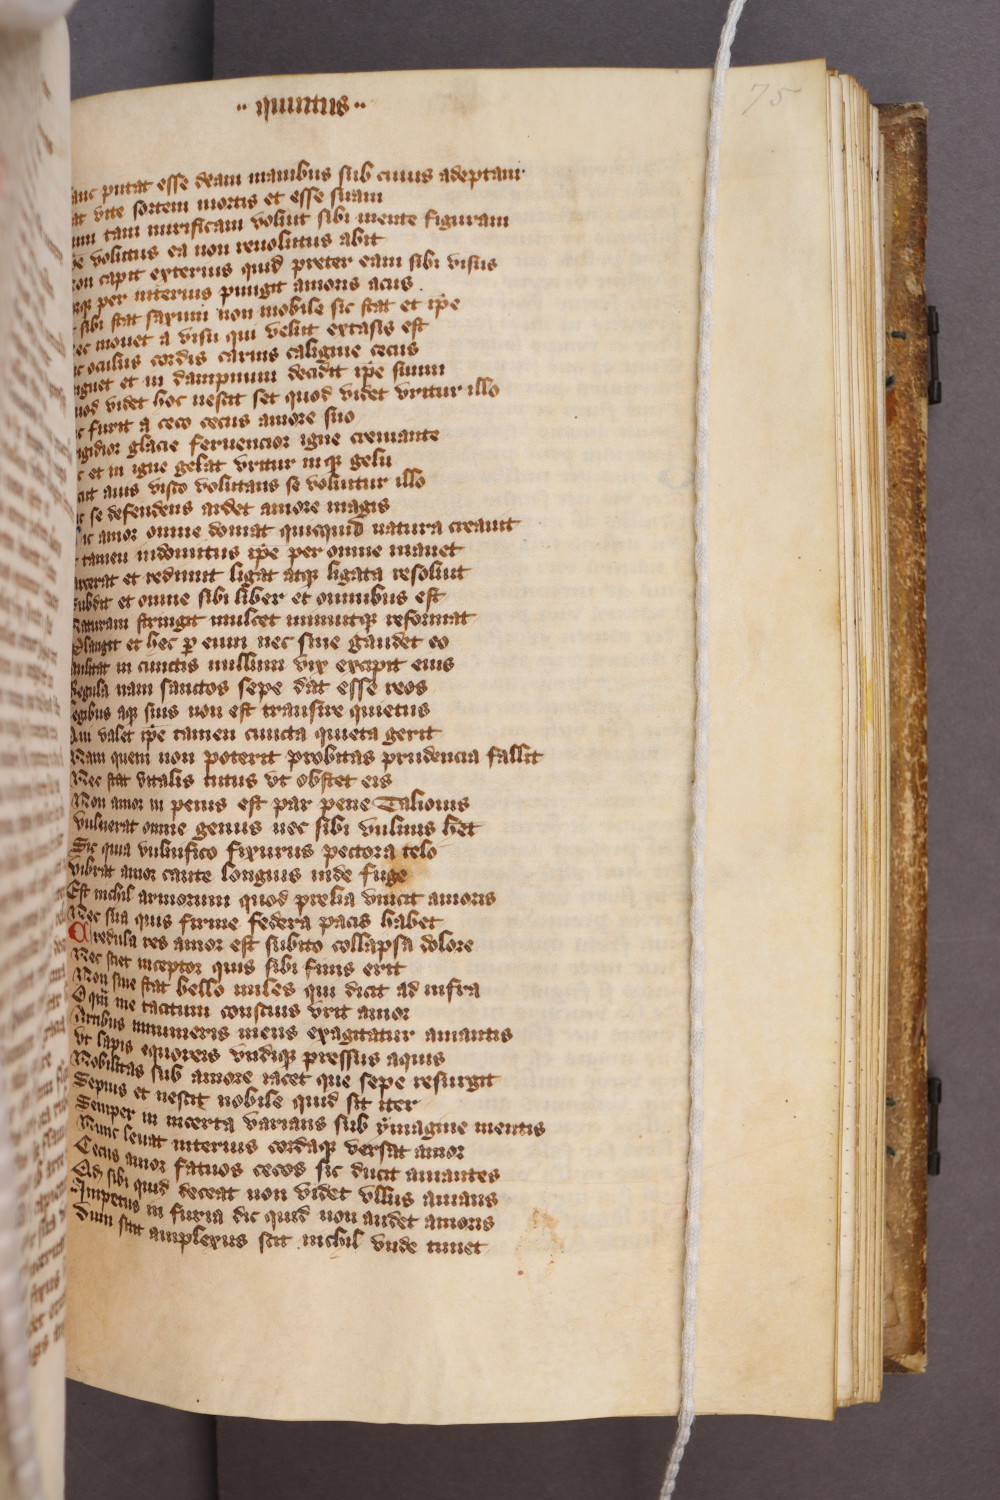 ·· quintus ··
75
putat esse deam manibus sub cuius adeptam
vite sortem mortis et esse suam
tam mirificam voluit sibi mente figuram
volutus ea non reuolutus abit
capit exterius quid preter eam sibi visus
per interius pungit amoris acus .
sibi stat saxum non mobile sic stat et ipe
mouet a visu qui velut extasis est
oculus cordis carnis caligine cecus
et in dampnum decidit ipe suum
videt hoc nescit set quod videt vritur illo
furit a ceco cecus amore suo
glacie feruencior igne cremante
et in igne gelat vritur inqȝ gelu
auis visco volutans se voluitur illo
se defendens ardet amore magis
ic amor omne domat quicquid natura creauit
tamen indomitus ipe per omne manet
et redimit ligat atqȝ ligata resoluit
Subdit et omne sibi liber et omnibus est
Naturam stringit mulcet minuitqȝ reformat
Plangit et hec ꝑ eum nec sine gaudet eo
in cunctis nullum vix excipit eius
Regula nam sanctos sepe dat esse reos
legibus aqȝ suis non est transire quietus
Qui valet ipe tamen cuncta quieta gerit
Nam quem non poterit probitas prudencia fallit
Nec stat vitalis tutus vt obstet eis
Non amor in penis est par pene Talionis
vulnerat omne genus nec sibi vulnus het
Sic quia vulnifico fixurus pectora telo
vibrat amor caute longius inde fuge
Est nichil armorum quod prelia vincit amoris
Nec sua quis firme federa pacis habet
Credula res amor est subito collapsa dolore
Nec sciet inceptor quis sibi finis erit
Non sine stat bello miles qui dicit ad infra
O qm me tacitum conscius vrit amor
Artibus innumeris mens exagitatur amantis
vt lapis equoreis vndiqȝ pressus aquis
Nobilitas sub amore iacet que sepe resurgit
Sepius et nescit nobile quid sit iter
Semper in incerta varians sub ymagine mentis
Nunc leuat interius cordaqȝ versat amor
Cecus amor fatuos cecos sic ducit amantes
Qd sibi quid deceat non videt vllus amans
Impetus in furia dic quid non audet amoris
Dum sitit amplexus scit nichil vnde timet